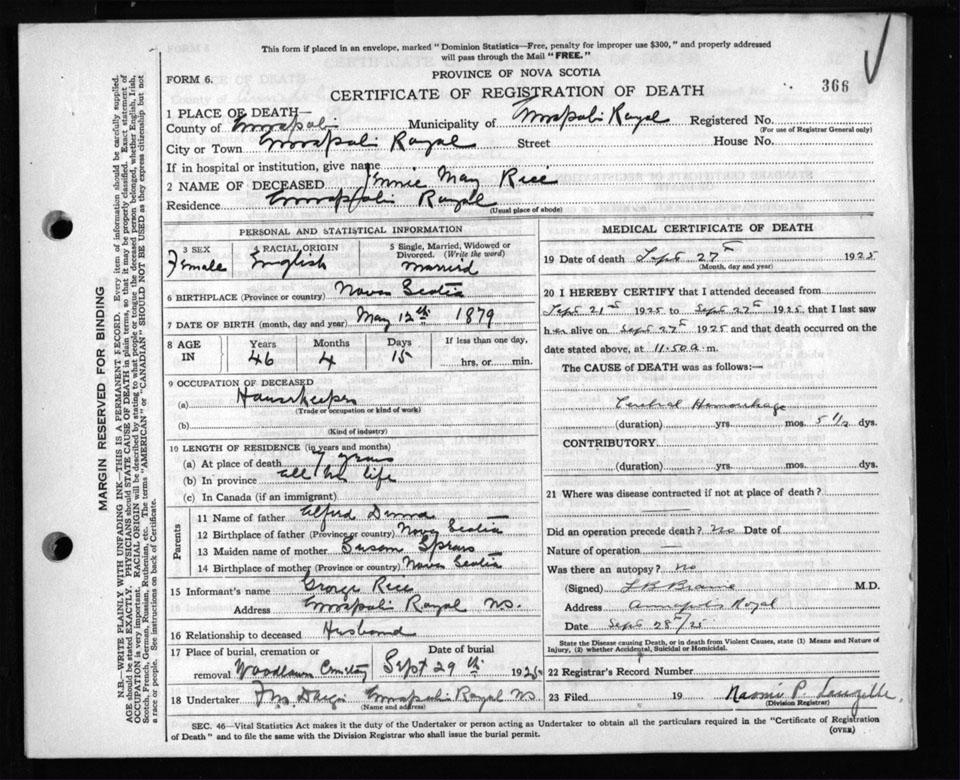 This form if placed in an envelope, marked "Dominion Statistics—Free, penalty for improper use $300," and properly addressed
will pass through the Mail "FREE."
PROVINCE OF NOVA SCOTIA
FORM 6.
CERTIFICATE OF REGISTRATION OF DEATH
366
1 PLACE OF DEATH—
County of Annapolis Municipality of Annapolis Royal Registered No.
(For use of Registrar General only)
City or Town Annapolis Royal Street House No.
If in hospital or institution, give name
2 NAME OF DECEASED May Rice
Residence Annapolis Royal
(Usual place of abode)
PERSONAL AND STATISTICAL INFORMATION
3 SEX Female
4 RACIAL ORIGIN English
5 Single, Married, Widowed or Divorced. (Write the word) Married
6 BIRTHPLACE (Province or country) Nova Scotia
7 DATE OF BIRTH (month, day and year) May 12th 1879
8 AGE IN Years 46 Months 4 Days 15 If less than one day, hrs. or min.
9 OCCUPATION OF DECEASED
(a) Housekeeper
(Trade or occupation or kind of work)
(b)
(Kind of industry)
10 LENGTH OF RESIDENCE (in years and months)
(a) At place of death 7 years
(b) In province all her life
(c) In Canada (if an immigrant)
Parents
11 Name of father
12 Birthplace of father (Province or country) Nova Scotia
13 Maiden name of mother Susan
14 Birthplace of mother (Province or country) Nova Scotia
15 Informant's name George Rice
Address Annapolis Royal NS.
16 Relationship to deceased Husband
17 Place of burial, cremation or removal Woodlawn Cemetery Date of burial Sept 29th 1925
18 Undertaker Annapolis Royal NS
(Name and address)
MEDICAL CERTIFICATE OF DEATH
19 Date of death Sept 27th 1925
(Month, day and year)
20 I HEREBY CERTIFY that I attended deceased from
Sept 21st 1925 to Sept 27th 1925 that I last saw
her alive on Sept 27th 1925 and that death occurred on the
date stated above, at 11.50 a.m.
The CAUSE of DEATH was as follows:—
Cerebral Hemorrhage
(duration) yrs. mos. 5 1/2 dys.
CONTRIBUTORY.
(duration) yrs. mos. dys.
21 Where was disease contracted if not at place of death?
Did an operation precede death? No Date of
Nature of operation
Was there an autopsy? No
(Signed) L B Braine M.D.
Address Annapolis Royal
Date Sept 28th/25
State the Disease causing Death, or in death from Violent Causes, state (1) Means and Nature of
Injury, (2) whether Accidental, Suicidal or Homicidal.
22 Registrar's Record Number
23 Filed 19 Naomi P.
(Division Registrar)
SEC. 46—Vital Statistics Act makes it the duty of the Undertaker or person acting as Undertaker to obtain all the particulars required in the "Certificate of Registration
of Death" and to file the same with the Division Registrar who shall issue the burial permit.
(OVER)
MARGIN RESERVED FOR BINDING
N.B.—WRITE PLAINLY WITH UNFADING INK—THIS IS A PERMANENT RECORD. Every item of information should be carefully supplied.
AGE should be stated EXACTLY. PHYSICIANS should STATE CAUSE OF DEATH in plain terms, so that it may be properly classified. Exact statement of
OCCUPATION is very important. RACIAL ORIGIN will be described by stating to what people or tongue the deceased person belonged, whether English, Irish,
Scotch, French, German, Russian, Ruthenian, etc. The terms "AMERICAN" or "CANADIAN" SHOULD NOT BE USED as they express citizenship but not
a race or people. See instructions on back of Certificate.